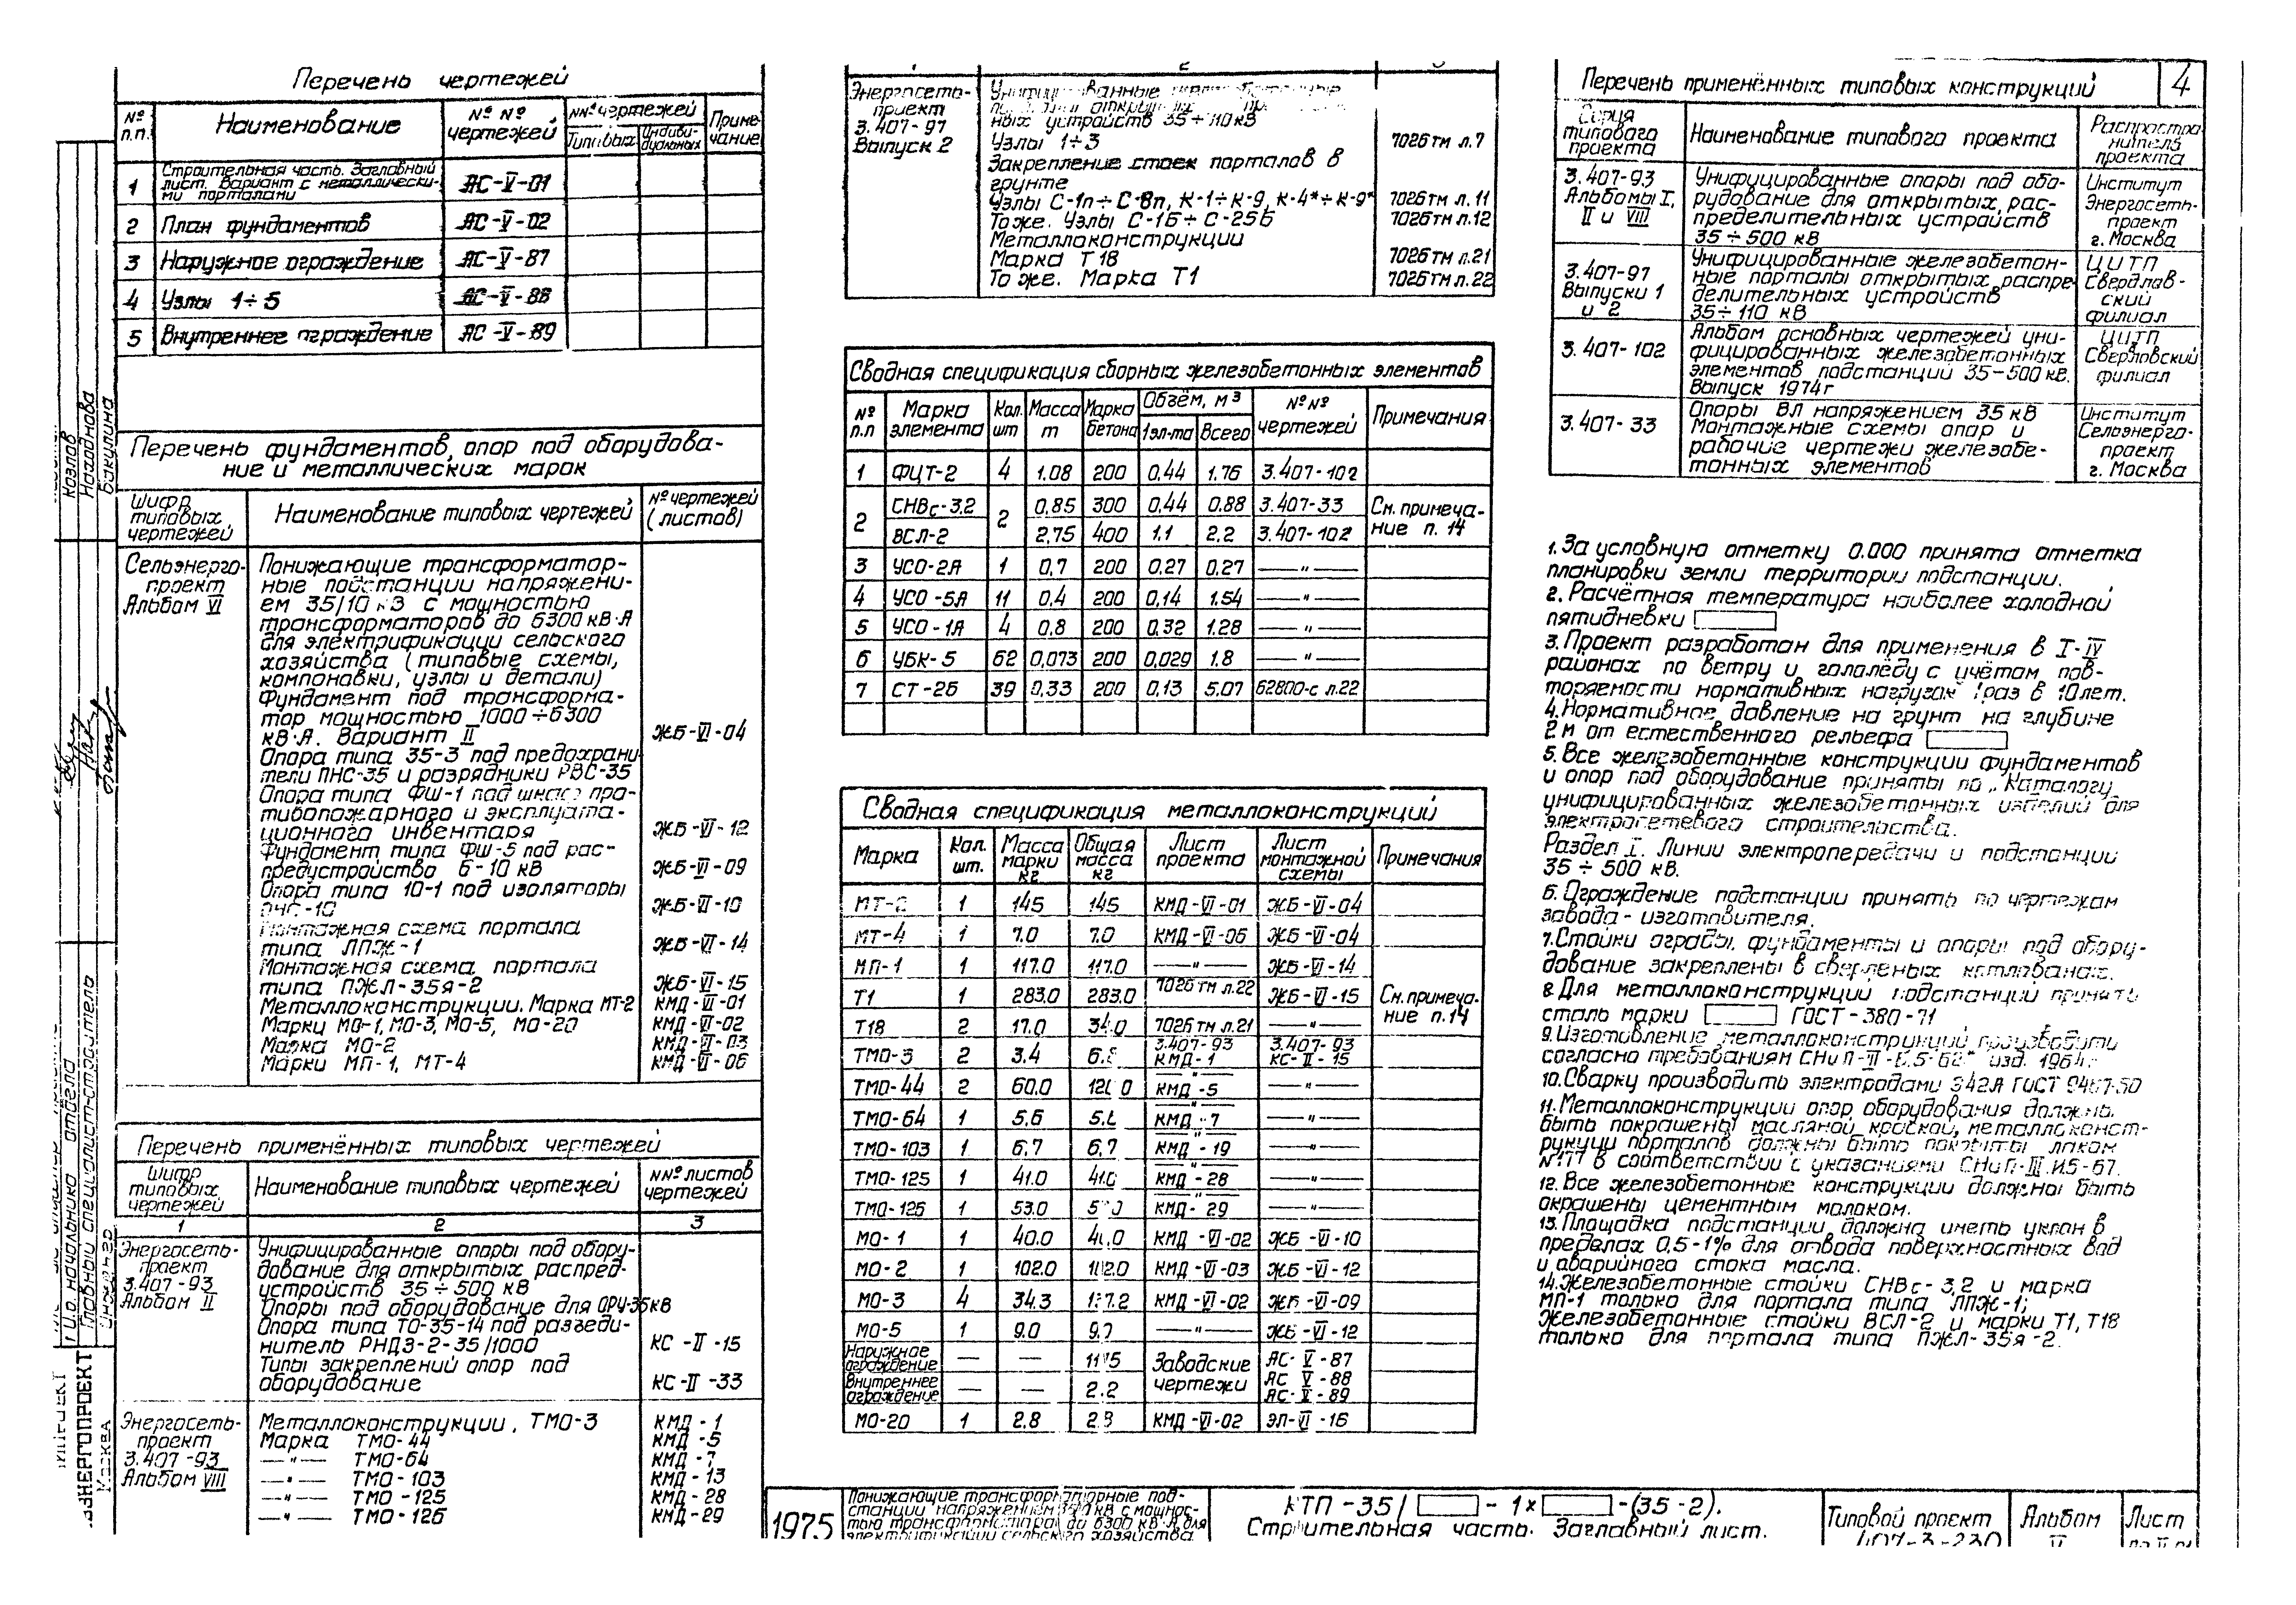 Перечень чертежей
№ п.п.
Наименование
№ № чертежей
№№ чертежей
Типовых
Индиви-
дуальных
Приме-
чание
1
Строительная часть. Заглавный
лист. Вариант с металлически-
ми порталами
АС-V-01
2 План фундаментов АС-V-02
3 Наружное ограждение АС-V-87
4 Узлы 1÷5 АС-V-88
5 Внутреннее ограждение АС-V-89
Перечень фундаментов, опор под оборудова-
ние и металлических марок
Шифр
типовых
чертежей
Наименование типовых чертежей
№ чертежей
(листов)
Сельэнерго-
проект
Альбом VI
Понижающие трансформатор-
ные подстанции напряжени-
ем 35/10 кВ с мощностью
трансформаторов до 6300 кВ·А
для электрификации сельского
хозяйства (типовые схемы,
компоновки, узлы и детали)
Фундамент под трансформа-
тор мощностью 1000÷6300
кВ·А. Вариант II ЖБ-VI-04
Опора типа 35-3 под предохрани-
тели ПНС-35 и разрядники РВС-35
Опора типа ФШ-1 под шкаф про-
тивопожарного и эксплуата-
ционного инвентаря ЖБ-VI-12
Фундамент типа ФШ-5 под рас-
предустройство 6-10 кВ ЖБ-VI-09
Опора типа 10-1 под изоляторы
-10 ЖБ-VI-10
Монтажная схема портала
типа ЛПЖ-1 ЖБ-VI-14
Монтажная схема портала
типа ПЖЛ-35я-2 ЖБ-VI-15
Металлоконструкции. Марка МТ-2 КМД-VI-01
Марки МО-1, МО-3, МО-5, МО-20 КМД-VI-02
Марка МО-2 КМД-VI-03
Марки МП-1, МТ-4 КМД-VI-06
Перечень применённых типовых чертежей
Шифр
типовых
чертежей
Наименование типовых чертежей
№№ листов
чертежей
1 2 3
Энергосеть-
проект
3.407-93
Альбом II
Унифицированные опоры под обору-
дование для открытых распред-
устройств 35÷500 кВ
Опоры под оборудование для ОРУ-35кВ
Опора типа ТО-35-14 под разъеди-
нитель РНДЗ-2-35/1000 КС-II-15
Типы закреплений опор под
оборудование КС-II-33
Энергосеть-
проект
3.407-93
Альбом VIII
Металлоконструкции, ТМО-3 КМД-1
Марка ТМО-44 КМД-5
—"— ТМО-64 КМД-7
—"— ТМО-103 КМД-13
—"— ТМО-125 КМД-28
—"— ТМО-126 КМД-29
Энергосеть-
проект
3.407-97
Выпуск 2
Унифицированные
ных устройств 35÷110кВ
Узлы 1÷3 7026тм л.7
Закрепление стоек порталов в
грунте
Узлы С-1п÷С-8п, К-1÷К-9, К-4*÷К-9* 7026тм л.11
То же. Узлы С-1б÷С-25б 7026тм л.12
Металлоконструкции
Марка Т18 7026тм л.21
То же. Марка Т1 7026тм л.22
Сводная спецификация сборных железобетонных элементов
№ п.п
Марка элемента
Кол. шт
Масса т
Марка бетона
Объём, м³
1эл-та
Всего
№№ чертежей
Примечания
1 ФЦТ-2 4 1.08 200 0,44 1.76 3.407-102
2 СНВс-3,2 2 0,85 300 0,44 0.88 3.407-33 См. примеча-
ВСЛ-2 2,75 400 1.1 2,2 3.407-102 ние п. 14
3 УСО-2А 1 0,7 200 0,27 0,27 —"—
4 УСО-5А 11 0,4 200 0,14 1.54 —"—
5 УСО-1А 4 0,8 200 0,32 1.28 —"—
6 УБК-5 62 0,073 200 0,029 1.8 —"—
7 СТ-2б 39 0,33 200 0,13 5.07 62800-с л.22
Сводная спецификация металлоконструкций
Марка
Кол. шт.
Масса марки кг
Общая масса кг
Лист проекта
Лист монтажной схемы
Примечания
МТ-2 1 145 145 КМД-VI-01 ЖБ-VI-04
МТ-4 1 7.0 7.0 КМД-VI-06 ЖБ-VI-04
МП-1 1 117.0 117.0 —"— ЖБ-VI-14
Т1 1 283,0 283,0 7026 тм л.22 ЖБ-VI-15 См. примеча-
ние п.14
Т18 2 17.0 34.0 7026 тм л.21 —"—
ТМО-3 2 3.4 6.8 3.407-93 КМД-1 3.407-93 КС-II-15
ТМО-44 2 60.0 120.0 —"— КМД-5 —"—
ТМО-64 1 5.6 5.6 —"— КМД-7 —"—
ТМО-103 1 6.7 6,7 —"— КМД-19 —"—
ТМО-125 1 41.0 41.0 —"— КМД-28 —"—
ТМО-126 1 53.0 —"— КМД-29 —"—
МО-1 1 40.0 40,0 КМД-VI-02 ЖБ-VI-10
МО-2 1 102.0 102.0 КМД-VI-03 ЖБ-VI-12
МО-3 4 34.3 137.2 КМД-VI-02 ЖБ-VI-09
МО-5 1 9.0 9.0 —"— ЖБ-VI-12
Наружное
ограждение — — Заводские АС-V-87
Внутреннее
ограждение — — 2.2 чертежи АС V-88
АС-V-89
МО-20 1 2.8 2.8 КМД-VI-02 ЭЛ-VI-16
Перечень применённых типовых конструкций
4
Серия
типового
проекта
Наименование типового проекта
Распростра-
нитель
проекта
3.407-93
Альбомы I,
II и VIII
Унифицированные опоры под обо-
рудование для открытых рас-
пределительных устройств
35÷500 кВ
Институт
Энергосеть-
проект
г. Москва
3.407-97
Выпуски 1
и 2
Унифицированные железобетон-
ные порталы открытых распре-
делительных устройств
35÷110 кВ
ЦИТП
Свердлов-
ский
филиал
3.407-102
Альбом основных чертежей уни-
фицированных железобетонных
элементов подстанций 35-500 кв.
Выпуск 1974г
ЦИТП
Свердловский
филиал
3.407-33
Опоры ВЛ напряжением 35 кВ
Монтажные схемы опор и
рабочие чертежи железобе-
тонных элементов
Институт
Сельэнерго-
проект
г. Москва
1. За условную отметку 0.000 принята отметка
планировки земли территории подстанции.
2. Расчётная температура наиболее холодной
пятидневки
3. Проект разработан для применения в I-IV
районах по ветру и гололёду с учётом пов-
торяемости нормативных нагрузок 1раз в 10лет.
4. Нормативное давление на грунт на глубине
2 м от естественного рельефа
5. Все железобетонные конструкции фундаментов
и опор под оборудование приняты по „Каталогу
унифицированных железобетонных изделий для
электросетевого строительства.
Раздел I. Линии электропередачи и подстанции
35÷500 кВ.
6. Ограждение подстанции принять по чертежам
завода-изготовителя.
7. Стойки ограды, фундаменты и опоры под обору-
дование закреплены в сверленых котлованах.
8. Для металлоконструкций подстанций принять
сталь марки ГОСТ-380-71
9. Изготовление металлоконструкций производити
согласно требованиям СНиП-III-В.5-62* изд. 1964г.
10. Сварку производить электродами Э42А ГОСТ 9467-60
11. Металлоконструкции опор оборудования должны
быть покрашены масляной краской, металлоконст-
рукции порталов должны быть покрыты лаком
№177 в соответствии с указаниями СНиП-III.И.5-67.
12. Все железобетонные конструкции должны быть
окрашены цементным молоком.
13. Площадка подстанции должна иметь уклон в
пределах 0,5-1% для отвода поверхностных вод
и аварийного стока масла.
14. Железобетонные стойки СНВс-3,2 и марка
МП-1 только для портала типа ЛПЖ-1;
Железобетонные стойки ВСЛ-2 и марки Т1, Т18
только для портала типа ПЖЛ-35я-2.
Козлов
Находнова
Бакулина
И.о. начальника отдела
Главный специалист-строитель
Инженер
Москва
1975
Понижающие трансформаторные под-
станции напряжением 35/10 кВ с мощнос-
тью трансформаторов до 6300 кВ·А для
электрификации сельского хозяйства
КТП-35/ - 1× -(35-2).
Строительная часть. Заглавный лист.
Типовой проект
407-3-230
Альбом
V
Лист